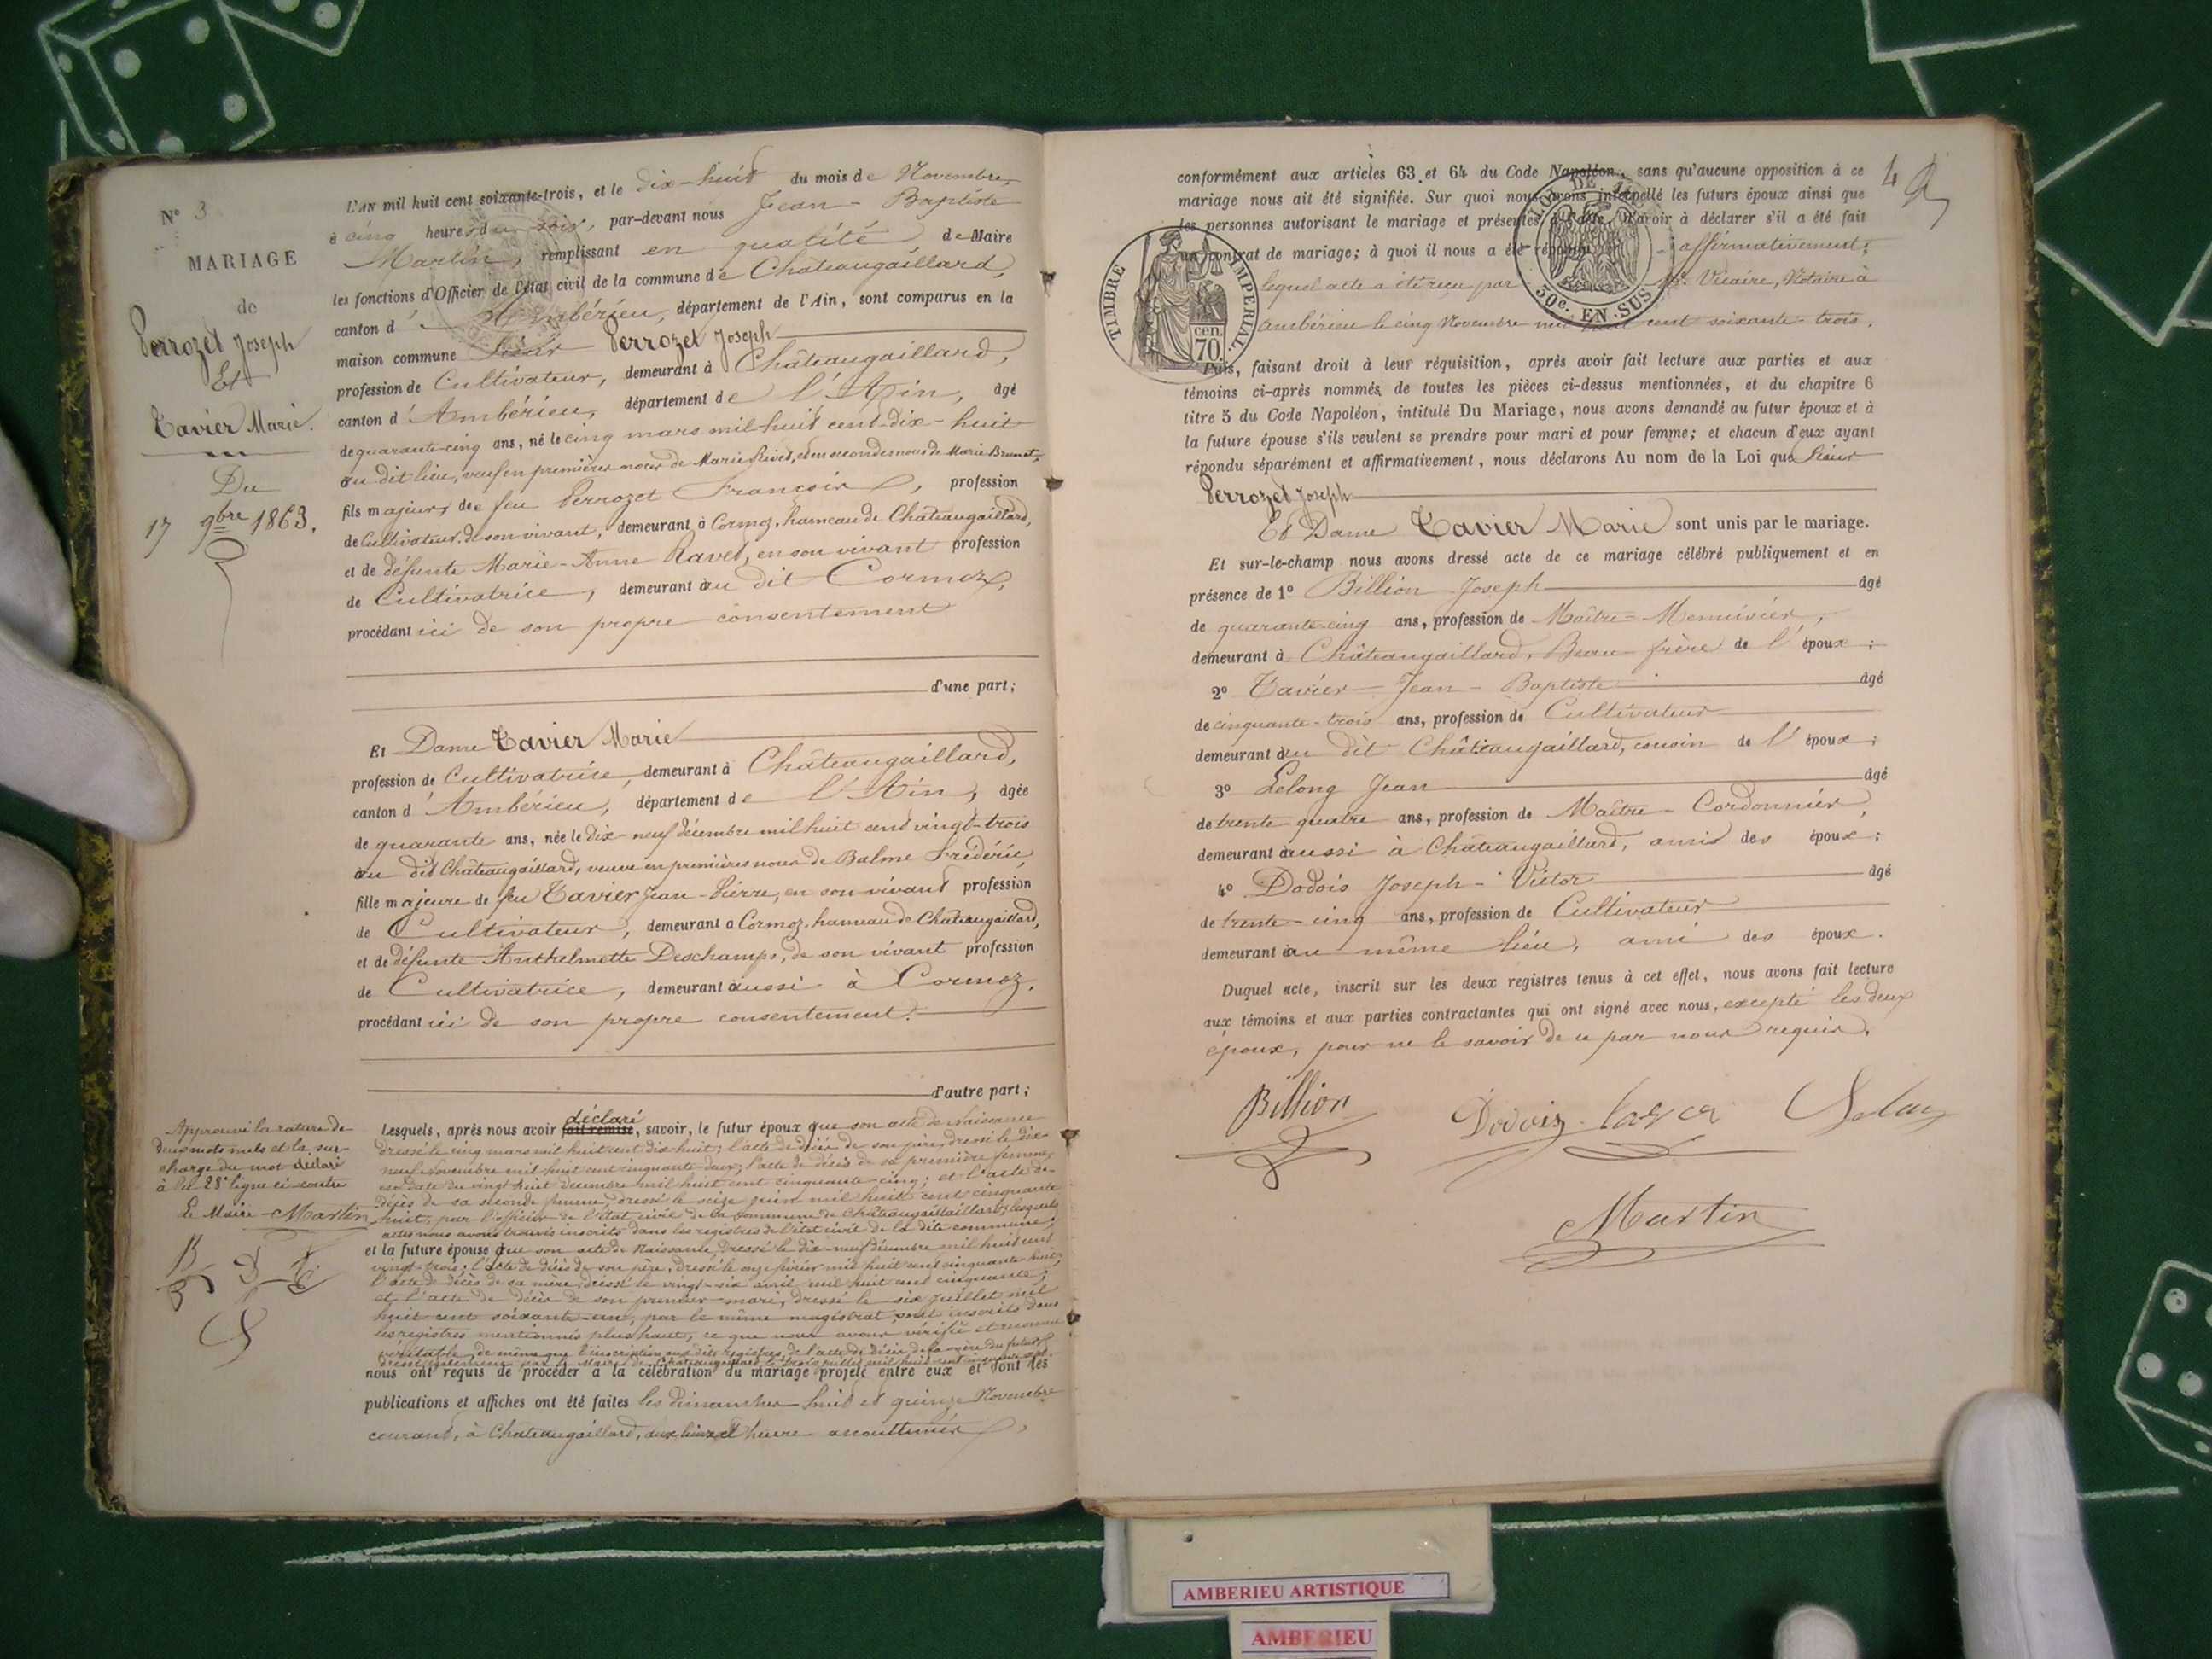 N° 3
MARIAGE
de
Perrozet Joseph
Et
Tavier Marie.
Du
17 9bre 1863.
L'AN mil huit cent soixante-trois, et le dix-huit du mois de Novembre,
à cinq heures du soir, par-devant nous Jean-Baptiste
Martin, remplissant en qualité de Maire
les fonctions d'Officier de l'état civil de la commune de Châteaugaillard,
canton d'Ambérieu, département de l'Ain, sont comparus en la
maison commune Sieur Perrozet Joseph
profession de Cultivateur, demeurant à Châteaugaillard,
canton d'Ambérieu, département de l'Ain, âgé
de quarante-cinq ans, né le cinq mars mil huit cent dix-huit
au dit lieu, veuf en premières noces de Marie Rivet, et en secondes noces de Marie Brunet,
fils majeur de feu Perrozet François, profession
de Cultivateur, de son vivant, demeurant à Cormoz, hameau de Châteaugaillard,
et de défunte Marie-Anne Ravet, en son vivant profession
de Cultivatrice, demeurant au dit Cormoz,
procédant ici de son propre consentement
d'une part;
Et Dame Tavier Marie
profession de Cultivatrice, demeurant à Châteaugaillard,
canton d'Ambérieu, département de l'Ain, âgée
de quarante ans, née le dix-neuf décembre mil huit cent vingt-trois
au dit Châteaugaillard, veuve en premières noces de Balme Frédéric,
fille majeure de feu Tavier Jean-Pierre, en son vivant profession
de Cultivateur, demeurant à Cormoz, hameau de Châteaugaillard,
et de défunte Anthelmette Deschamps, de son vivant profession
de Cultivatrice, demeurant aussi à Cormoz,
procédant ici de son propre consentement.
d'autre part;
Approuvé la rature de
deux mots nuls et la sur-
charge du mot déclaré
à la 28e ligne ci-contre
Le Maire Martin
déclaré
Lesquels, après nous avoir fait remise, savoir, le futur époux que son acte de Naissance
dressé le cinq mars mil huit cent dix huit; l'acte de décès de son père, dressé le dix-
neuf novembre mil huit cent cinquante-deux; l'acte de décès de sa première femme,
en date du vingt huit décembre mil huit cent cinquante cinq; et l'acte de
décès de sa seconde femme, dressé le seize juin mil huit cent cinquante
huit, par l'officier de l'état civil de la commune de Châteaugaillard, lesquels
actes nous avons trouvés inscrits dans les registres de l'état civil de la dite commune;
et la future épouse que son acte de Naissance, dressé le dix-neuf décembre mil huit cent
vingt-trois; l'acte de décès de son père, dressé le onze février mil huit cent cinquante-huit;
l'acte de décès de sa mère, dressé le vingt-six avril mil huit cent cinquante;
et l'acte de décès de son premier mari, dressé le six juillet mil
huit cent soixante-un, par le même magistrat, sont inscrits dans
les registres mentionnés plus haut, ce que nous avons vérifié et reconnu
véritable, de même que l'inscription aux dits registres, de l'acte de décès de la mère du futur,
dressé également par le Maire de Châteaugaillard le trois juillet mil huit cent
nous ont requis de procéder à la célébration du mariage projeté entre eux et dont les
publications et affiches ont été faites les Dimanches huit et quinze Novembre
courant, à Châteaugaillard, aux lieux et heure accoutumés,
4
conformément aux articles 63 et 64 du Code Napoléon, sans qu'aucune opposition à ce
mariage nous ait été signifiée. Sur quoi nous avons interpellé les futurs époux ainsi que
les personnes autorisant le mariage et présentes à l'acte, d'avoir à déclarer s'il a été fait
un contrat de mariage; à quoi il nous a été répondu affirmativement;
lequel acte a été reçu par Me. Vicaire, Notaire à
Ambérieu le cinq Novembre mil huit cent soixante-trois.
TIMBRE IMPERIAL.
cen.
70.
LOI DE
50c. EN SUS
Puis, faisant droit à leur réquisition, après avoir fait lecture aux parties et aux
témoins ci-après nommés de toutes les pièces ci-dessus mentionnées, et du chapitre 6
titre 5 du Code Napoléon, intitulé Du Mariage, nous avons demandé au futur époux et à
la future épouse s'ils veulent se prendre pour mari et pour femme; et chacun d'eux ayant
répondu séparément et affirmativement, nous déclarons Au nom de la Loi que Sieur
Perrozet Joseph
Et Dame Tavier Marie sont unis par le mariage.
Et sur-le-champ nous avons dressé acte de ce mariage célébré publiquement et en
présence de 1° Billion Joseph âgé
de quarante-cinq ans, profession de Maître-Menuisier,
demeurant à Châteaugaillard, Beau-frère de l'époux;
2° Tavier Jean-Baptiste âgé
de cinquante-trois ans, profession de Cultivateur
demeurant au dit Châteaugaillard, cousin de l'époux;
3° Lelong Jean âgé
de trente quatre ans, profession de Maître-Cordonnier,
demeurant aussi à Châteaugaillard, ami des époux;
4° Dodois Joseph-Victor âgé
de trente-cinq ans, profession de Cultivateur
demeurant au même lieu, ami des époux.
Duquel acte, inscrit sur les deux registres tenus à cet effet, nous avons fait lecture
aux témoins et aux parties contractantes qui ont signé avec nous, excepté les deux
époux, pour ne le savoir de ce par nous requis.
Billion Dodois
Martin
AMBERIEU ARTISTIQUE
AMBERIEU